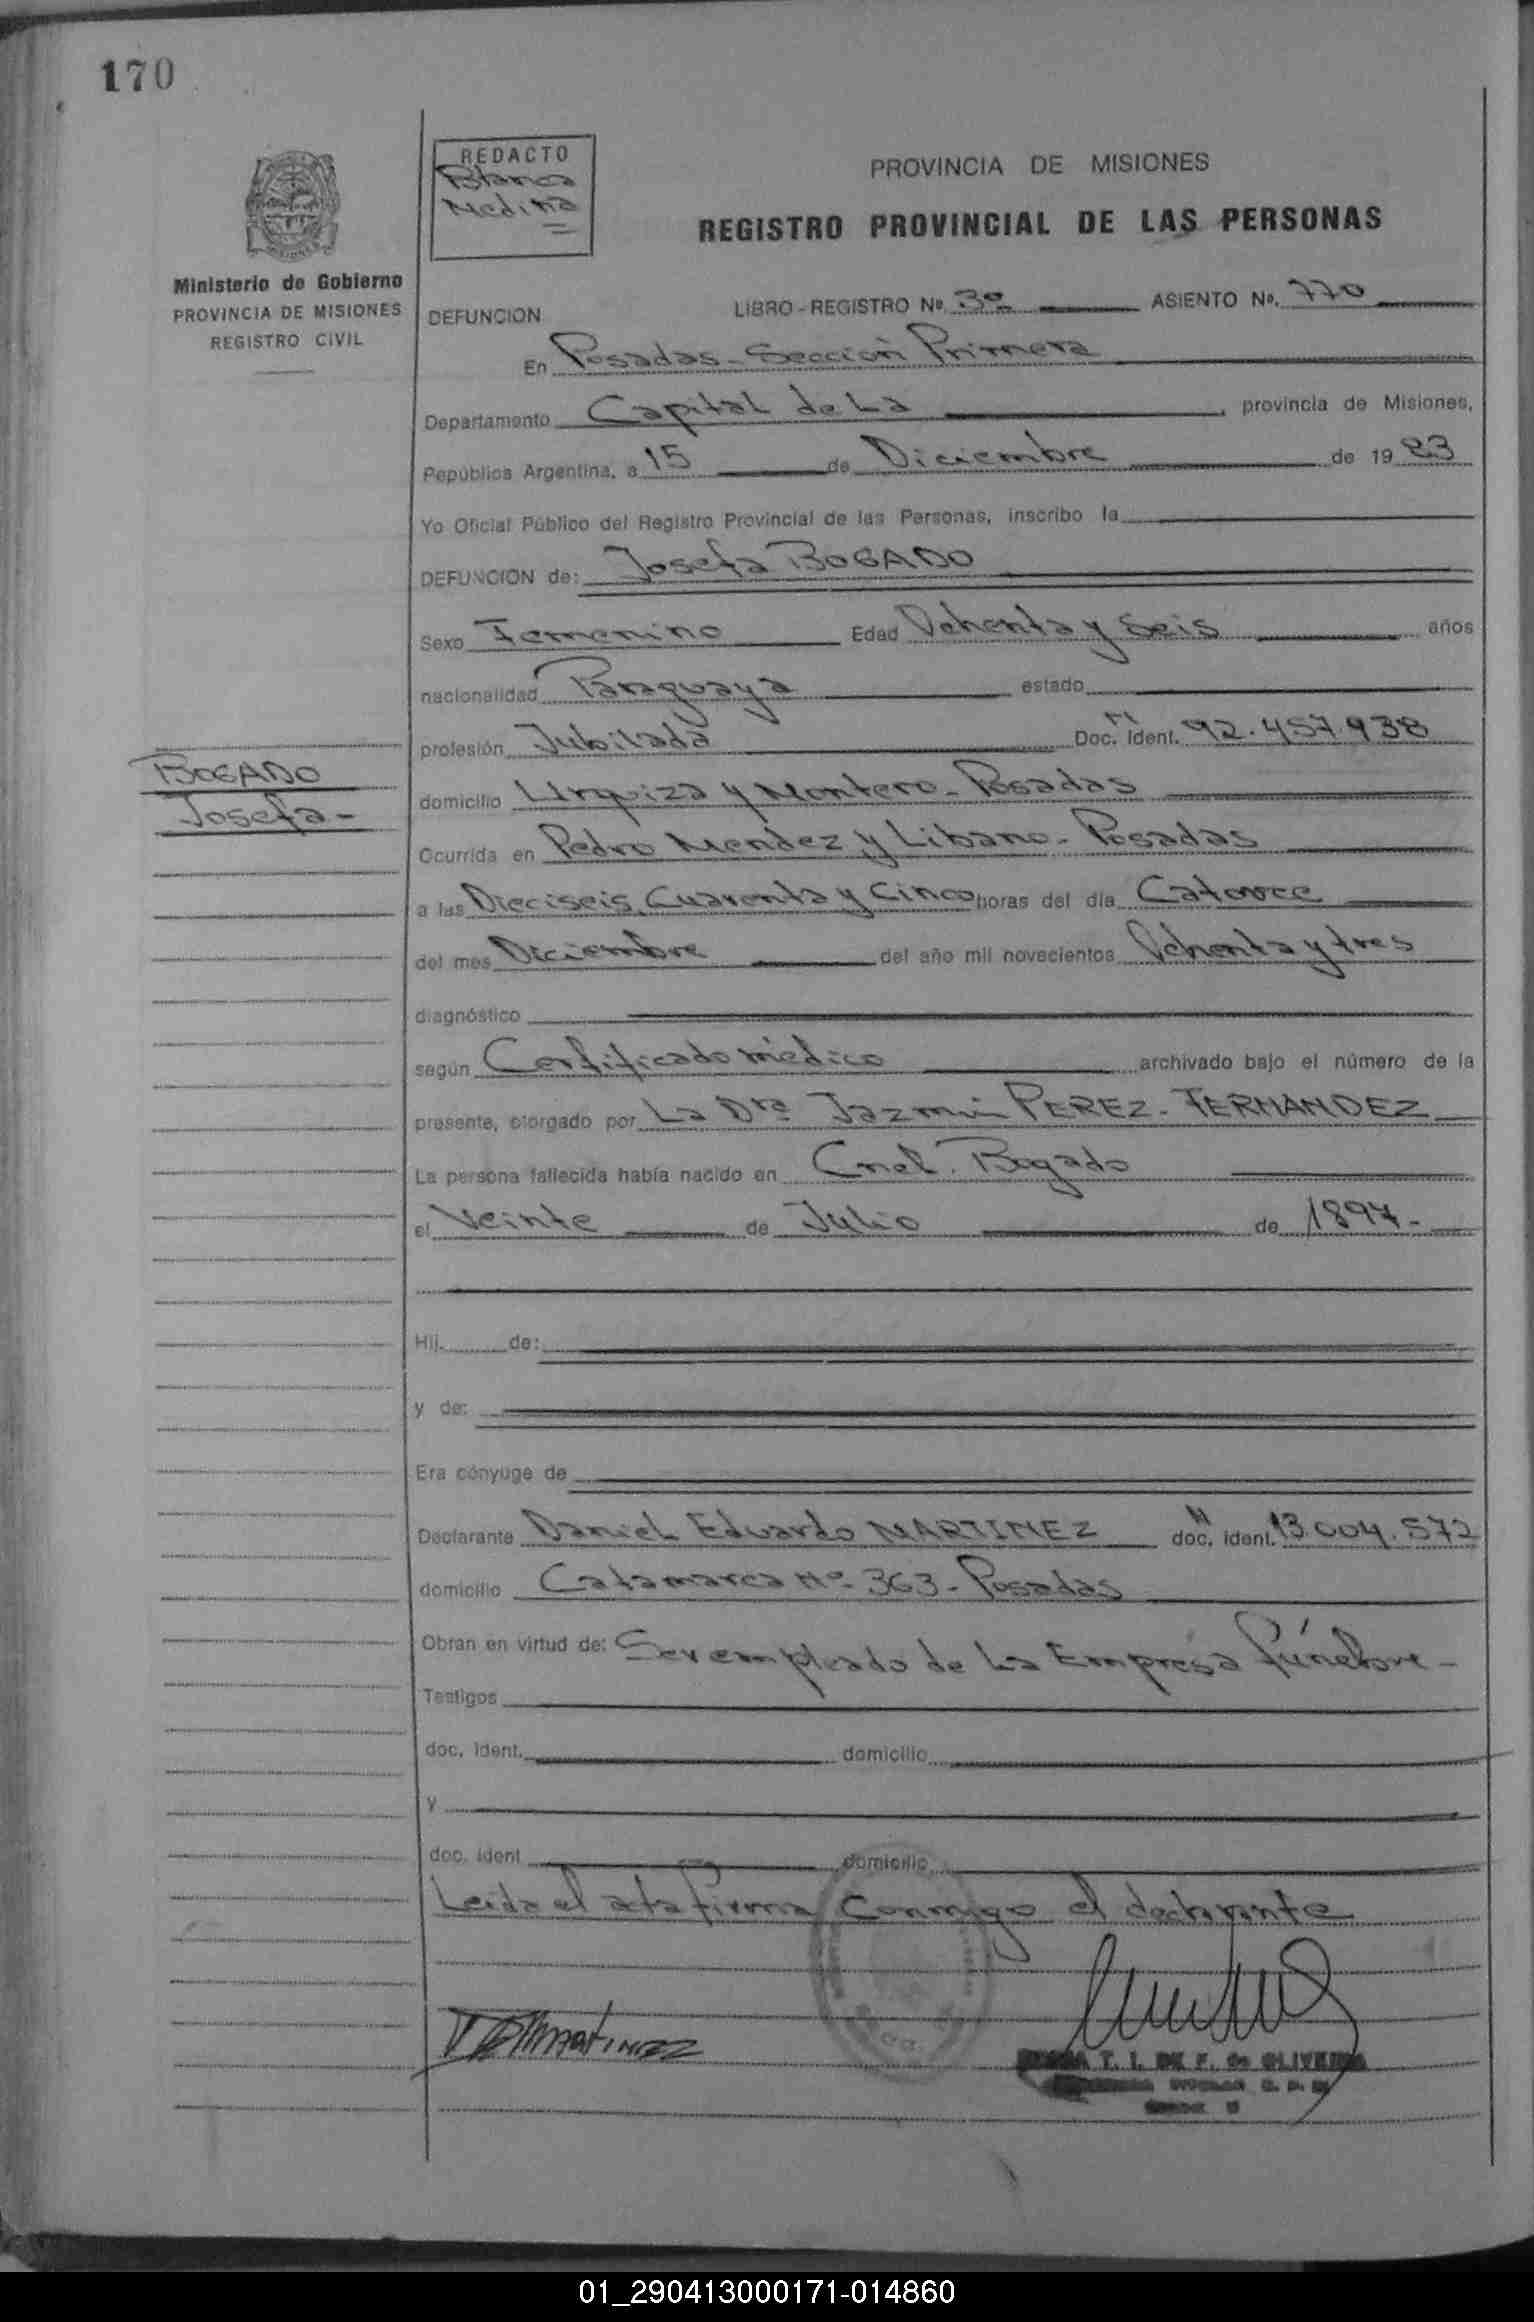 170
REDACTO
Blanca
Medina
PROVINCIA DE MISIONES
REGISTRO PROVINCIAL DE LAS PERSONAS
Ministerio de Gobierno
PROVINCIA DE MISIONES
REGISTRO CIVIL
DEFUNCION LIBRO-REGISTRO No. 3º ASIENTO No. 770
En Posadas - Sección Primera
Departamento Capital de La, provincia de Misiones,
República Argentina, a 15 de Diciembre de 1983
Yo Oficial Público del Registro Provincial de las Personas, inscribo la
DEFUNCION de: Josefa BOGADO
Sexo Femenino Edad Ochenta y Seis años
nacionalidad Paraguaya estado
profesión Jubilada Doc. Ident. 92.457.938
BOGADO
Josefa-
domicilio Urquiza y Montero - Posadas
Ocurrida en Pedro Mendez y Libano - Posadas
a las Dieciseis, Cuarenta y Cinco horas del día Catorce
del mes Diciembre del año mil novecientos Ochenta y tres
diagnóstico
según Certificado médico archivado bajo el número de la
presente, otorgado por La Dra Jazmin PEREZ - FERNANDEZ
La persona fallecida había nacido en Cnel. Bogado
el Veinte de Julio de 1897.-
Hij. de:
y de:
Era cónyuge de
Declarante Daniel Eduardo MARTINEZ doc. ident. 13.004.572
domicilio Catamarca Nº 363 - Posadas
Obran en virtud de: Ser empleado de La Empresa fúnebre -
Testigos
doc. ident. domicilio
y
doc. ident. domicilio
Leida el acta firma conmigo el declarante
MARTINEZ
T. I. DE F. de OLIVEIRA
01_290413000171-014860